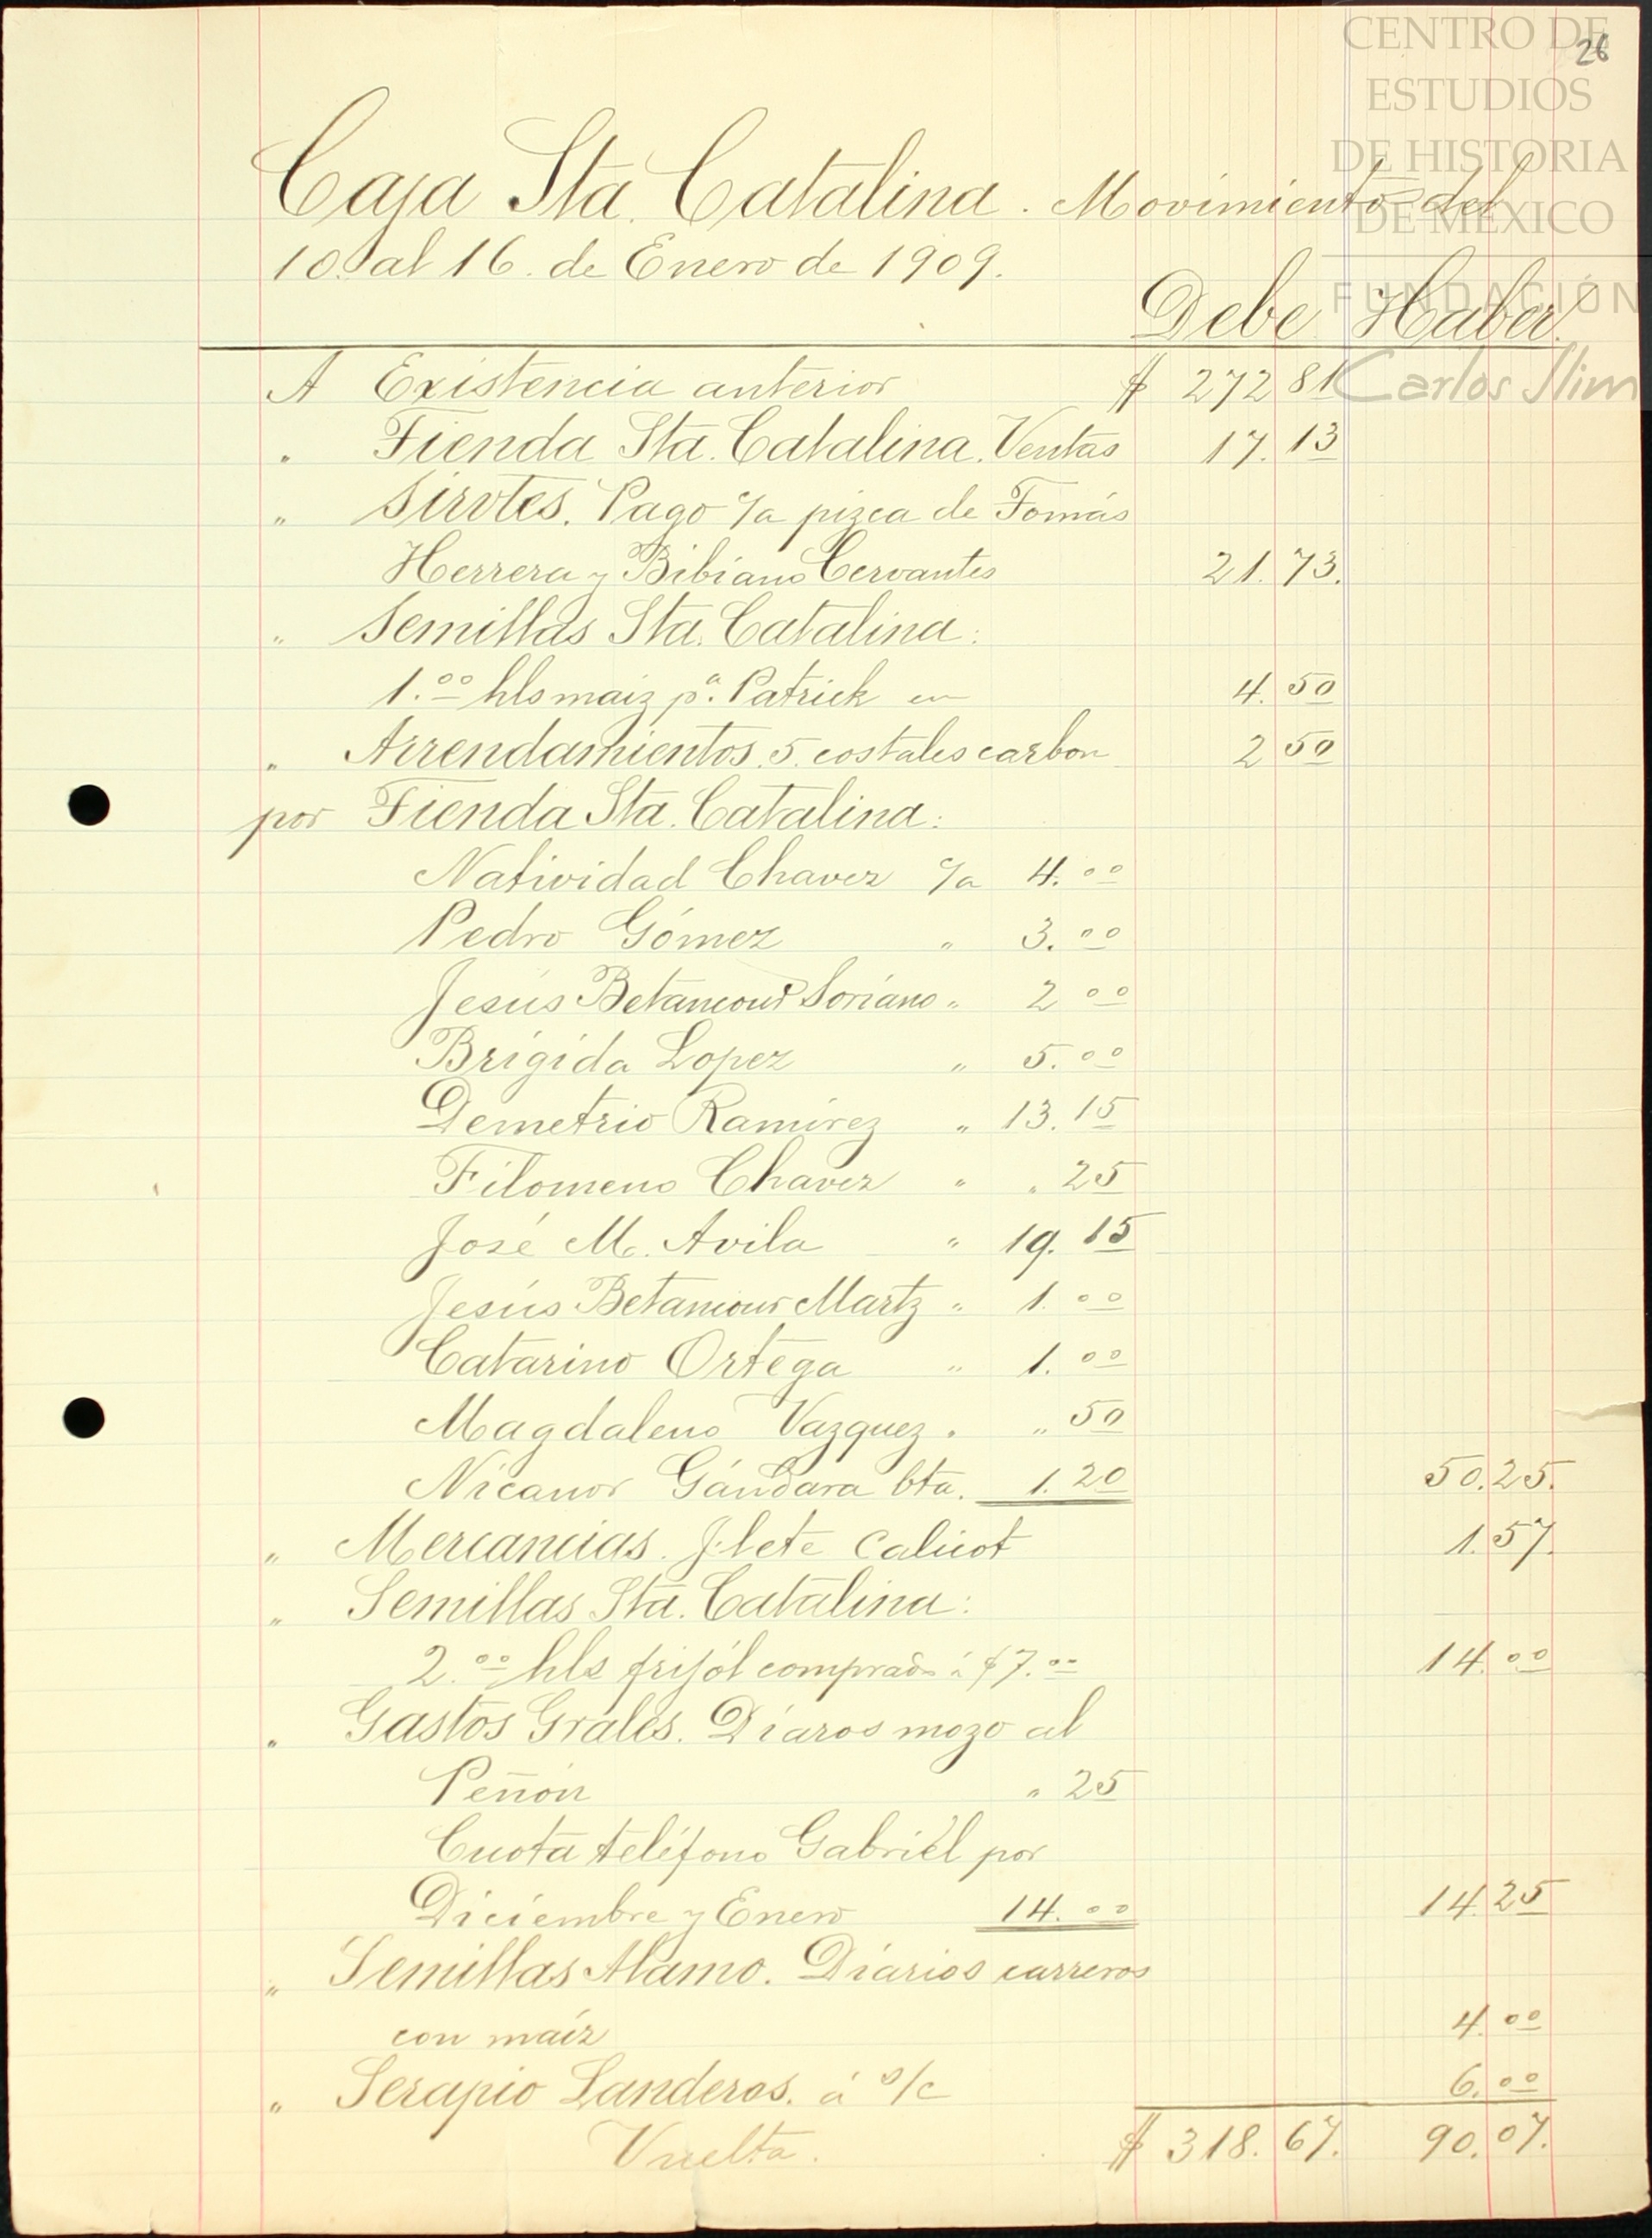 26
CENTRO DE
ESTUDIOS
DE HISTORIA
DE MÉXICO
FUNDACIÓN
Carlos Slim
Caja Sta. Catalina. Movimiento del
10. al 16. de Enero de 1909.
Debe Haber.
A Existencia anterior $ 272 81
" Tienda Sta. Catalina. Ventas 17. 13
" Sirvtes. Pago c/a pizca de Tomás
Herrera y Bibiano Cervantes 21. 73.
" Semillas Sta. Catalina:
1.00 hls maiz pa. Patrick en 4. 50
" Arrendamientos. 5. costales carbon 2 50
por Tienda Sta. Catalina:
Natividad Chavez c/a 4. 00
Pedro Gómez " 3. 00
Jesús Betancourt Soriano " 2 00
Brígida Lopez " 5. 00
Demetrio Ramírez " 13. 15
Filomeno Chavez " " 25
José M. Avila " 19. 15
Jesús Betancour Martz " 1. 00
Catarino Ortega " 1. 00
Magdaleno Vazquez " " 50
Nicanor Gándara bta. 1. 20 50. 25.
" Mercancias. flete Calicot 1. 57.
" Semillas Sta. Catalina:
2.00 hls frijól comprado á $7.00 14. 00
" Gastos Grales. Diaros mozo al
Peñón " 25
Cuota teléfono Gabriel por
Diciembre y Enero 14. 00 14. 25
" Semillas Alamo. Diarios carreros
con maíz 4. 00
" Serapio Landeros. á s/c 6. 00
Vuelta. $ 318. 67. 90. 07.